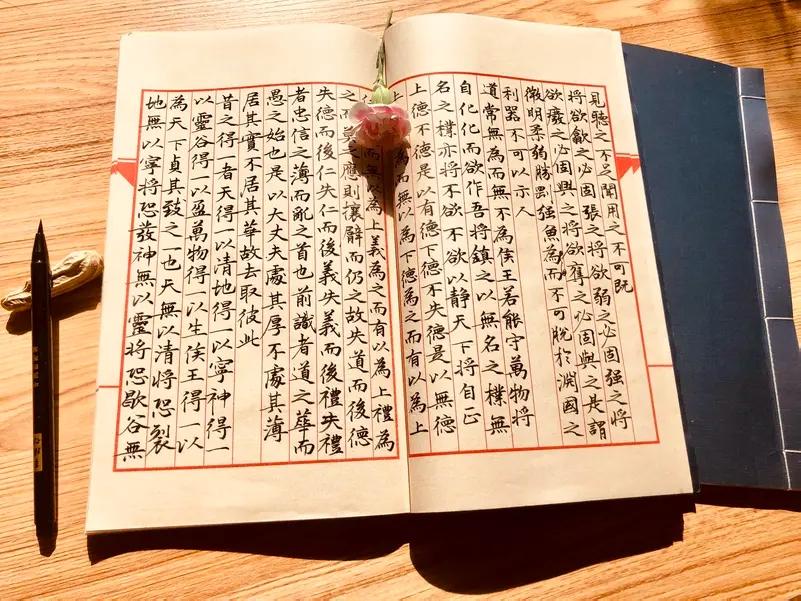 見聽之不足聞用之不可既
將欲歙之必固張之將欲弱之必固强之將
欲廢之必固興之將欲奪之必固與之是謂
微明柔弱勝强魚為而不可脫於淵國之
利器不可以示人
道常無為而無不為侯王若能守萬物將
自化化而欲作吾將鎮之以無名之樸無
名之樸亦將不欲不欲以靜天下將自正
上德不德是以有德下德不失德是以無德
為而無以為下德為之而有以為上
而無以為上義為之而有以為上禮為
之而莫之應則攘臂而仍之故失道而後德
失德而後仁失仁而後義失義而後禮夫禮
者忠信之薄而亂之首也前識者道之華而
愚之始也是以大丈夫處其厚不處其薄
居其實不居其華故去取彼此
昔之得一者天得一以清地得一以寧神得一
以靈谷得一以盈萬物得一以生侯王得一以
為天下貞其致之一也天無以清將恐裂
地無以寧將恐發神無以靈將恐歇谷無